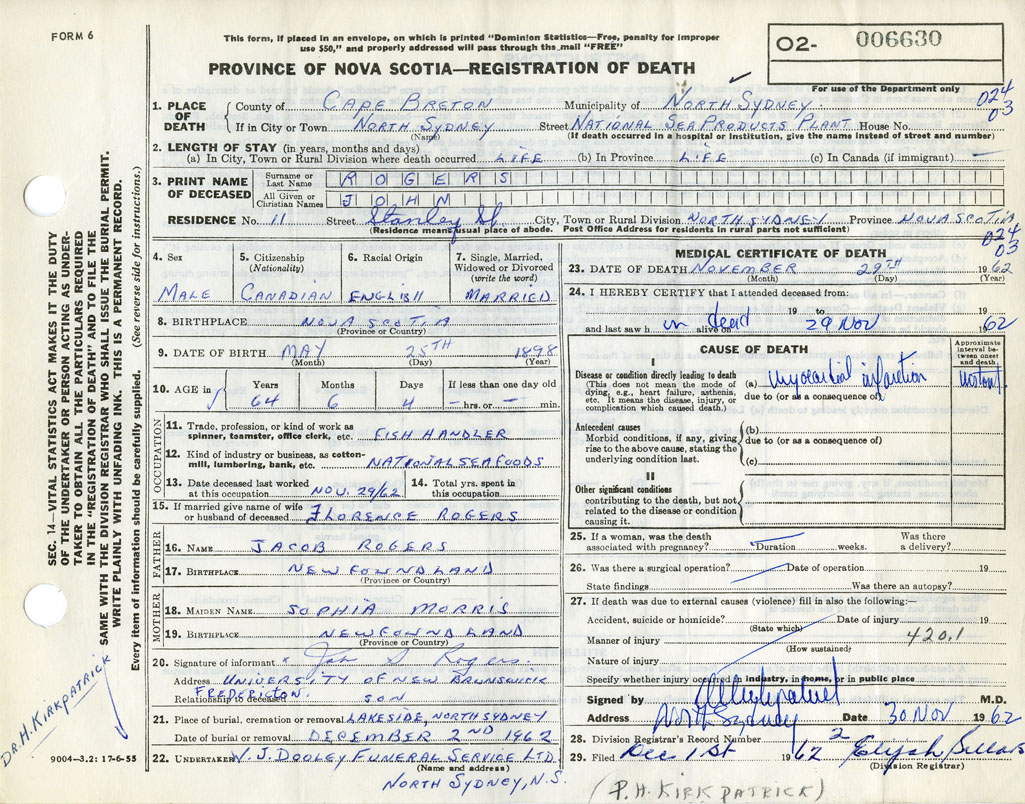 FORM 6
This form, if placed in an envelope, on which is printed "Dominion Statistics—Free, penalty for improper
use $50," and properly addressed will pass through the mail "FREE"
PROVINCE OF NOVA SCOTIA—REGISTRATION OF DEATH
02- 006630
For use of the Department only
024
03
1. PLACE OF DEATH { County of CAPE BRETON Municipality of NORTH SYDNEY.
If in City or Town NORTH SYDNEY Street NATIONAL SEA PRODUCTS PLANT House No.
(Name) (If death occurred in a hospital or institution, give the name instead of street and number)
2. LENGTH OF STAY (in years, months and days)
(a) In City, Town or Rural Division where death occurred LIFE (b) In Province LIFE (c) In Canada (if immigrant) —
3. PRINT NAME OF DECEASED
Surname or Last Name ROGERS
All Given or Christian Names JOHN
RESIDENCE No. 11 Street Stanley St City, Town or Rural Division NORTH SYDNEY Province NOVA SCOTIA
(Residence means usual place of abode. Post Office Address for residents in rural parts not sufficient)
024
03
4. Sex 5. Citizenship (Nationality) 6. Racial Origin 7. Single, Married, Widowed or Divorced (write the word)
MALE CANADIAN ENGLISH MARRIED
8. BIRTHPLACE NOVA SCOTIA
(Province or Country)
9. DATE OF BIRTH MAY 25TH 1898
(Month) (Day) (Year)
10. AGE in { Years Months Days If less than one day old
64 6 4 — hrs. or — min.
OCCUPATION
11. Trade, profession, or kind of work as spinner, teamster, office clerk, etc. FISH HANDLER
12. Kind of industry or business, as cotton-mill, lumbering, bank, etc. NATIONAL SEA FOODS
13. Date deceased last worked at this occupation NOV. 29/62 14. Total yrs. spent in this occupation
15. If married give name of wife or husband of deceased FLORENCE ROGERS
FATHER
16. NAME JACOB ROGERS
17. BIRTHPLACE NEWFOUNDLAND
(Province or Country)
MOTHER
18. MAIDEN NAME SOPHIA MORRIS
19. BIRTHPLACE NEWFOUNDLAND
(Province or Country)
20. Signature of informant x John S Rogers.
Address UNIVERSITY OF NEW BRUNSWICK
FREDERICTON.
Relationship to deceased SON
21. Place of burial, cremation or removal LAKESIDE, NORTH SYDNEY
Date of burial or removal DECEMBER 2ND 1962
22. UNDERTAKER V. J. DOOLEY FUNERAL SERVICE LTD
(Name and address)
NORTH SYDNEY, N.S.
MEDICAL CERTIFICATE OF DEATH
23. DATE OF DEATH NOVEMBER 29TH 1962
(Month) (Day) (Year)
24. I HEREBY CERTIFY that I attended deceased from:
19 to
and last saw h im alive on dead 29 Nov 1962
CAUSE OF DEATH
Approximate interval between onset and death
I
Disease or condition directly leading to death
(This does not mean the mode of dying, e.g., heart failure, asthenia, etc. It means the disease, injury, or complication which caused death.)
(a) myocardial infarction instant
due to (or as a consequence of)
Antecedent causes
Morbid conditions, if any, giving rise to the above cause, stating the underlying condition last.
(b)
due to (or as a consequence of)
(c)
II
Other significant conditions
contributing to the death, but not related to the disease or condition causing it.
25. If a woman, was the death associated with pregnancy? Duration weeks. Was there a delivery?
26. Was there a surgical operation? Date of operation 19
State findings Was there an autopsy?
27. If death was due to external causes (violence) fill in also the following:—
Accident, suicide or homicide? Date of injury 19
(State which)
Manner of injury 420.1
(How sustained)
Nature of injury
Specify whether injury occurred in industry, in home, or in public place
Signed by M.D.
Address North Sydney Date 30 Nov 1962
28. Division Registrar's Record Number 2
29. Filed Dec 1st 1962
(Division Registrar)
(P.H. KIRKPATRICK)
SEC. 14—VITAL STATISTICS ACT MAKES IT THE DUTY
OF THE UNDERTAKER OR PERSON ACTING AS UNDER-
TAKER TO OBTAIN ALL THE PARTICULARS REQUIRED
IN THE "REGISTRATION OF DEATH" AND TO FILE THE
SAME WITH THE DIVISION REGISTRAR WHO SHALL ISSUE THE BURIAL PERMIT.
WRITE PLAINLY WITH UNFADING INK. THIS IS A PERMANENT RECORD.
Every item of information should be carefully supplied. (See reverse side for instructions.)
DR. H. KIRKPATRICK
9004—3.2: 17-6-55